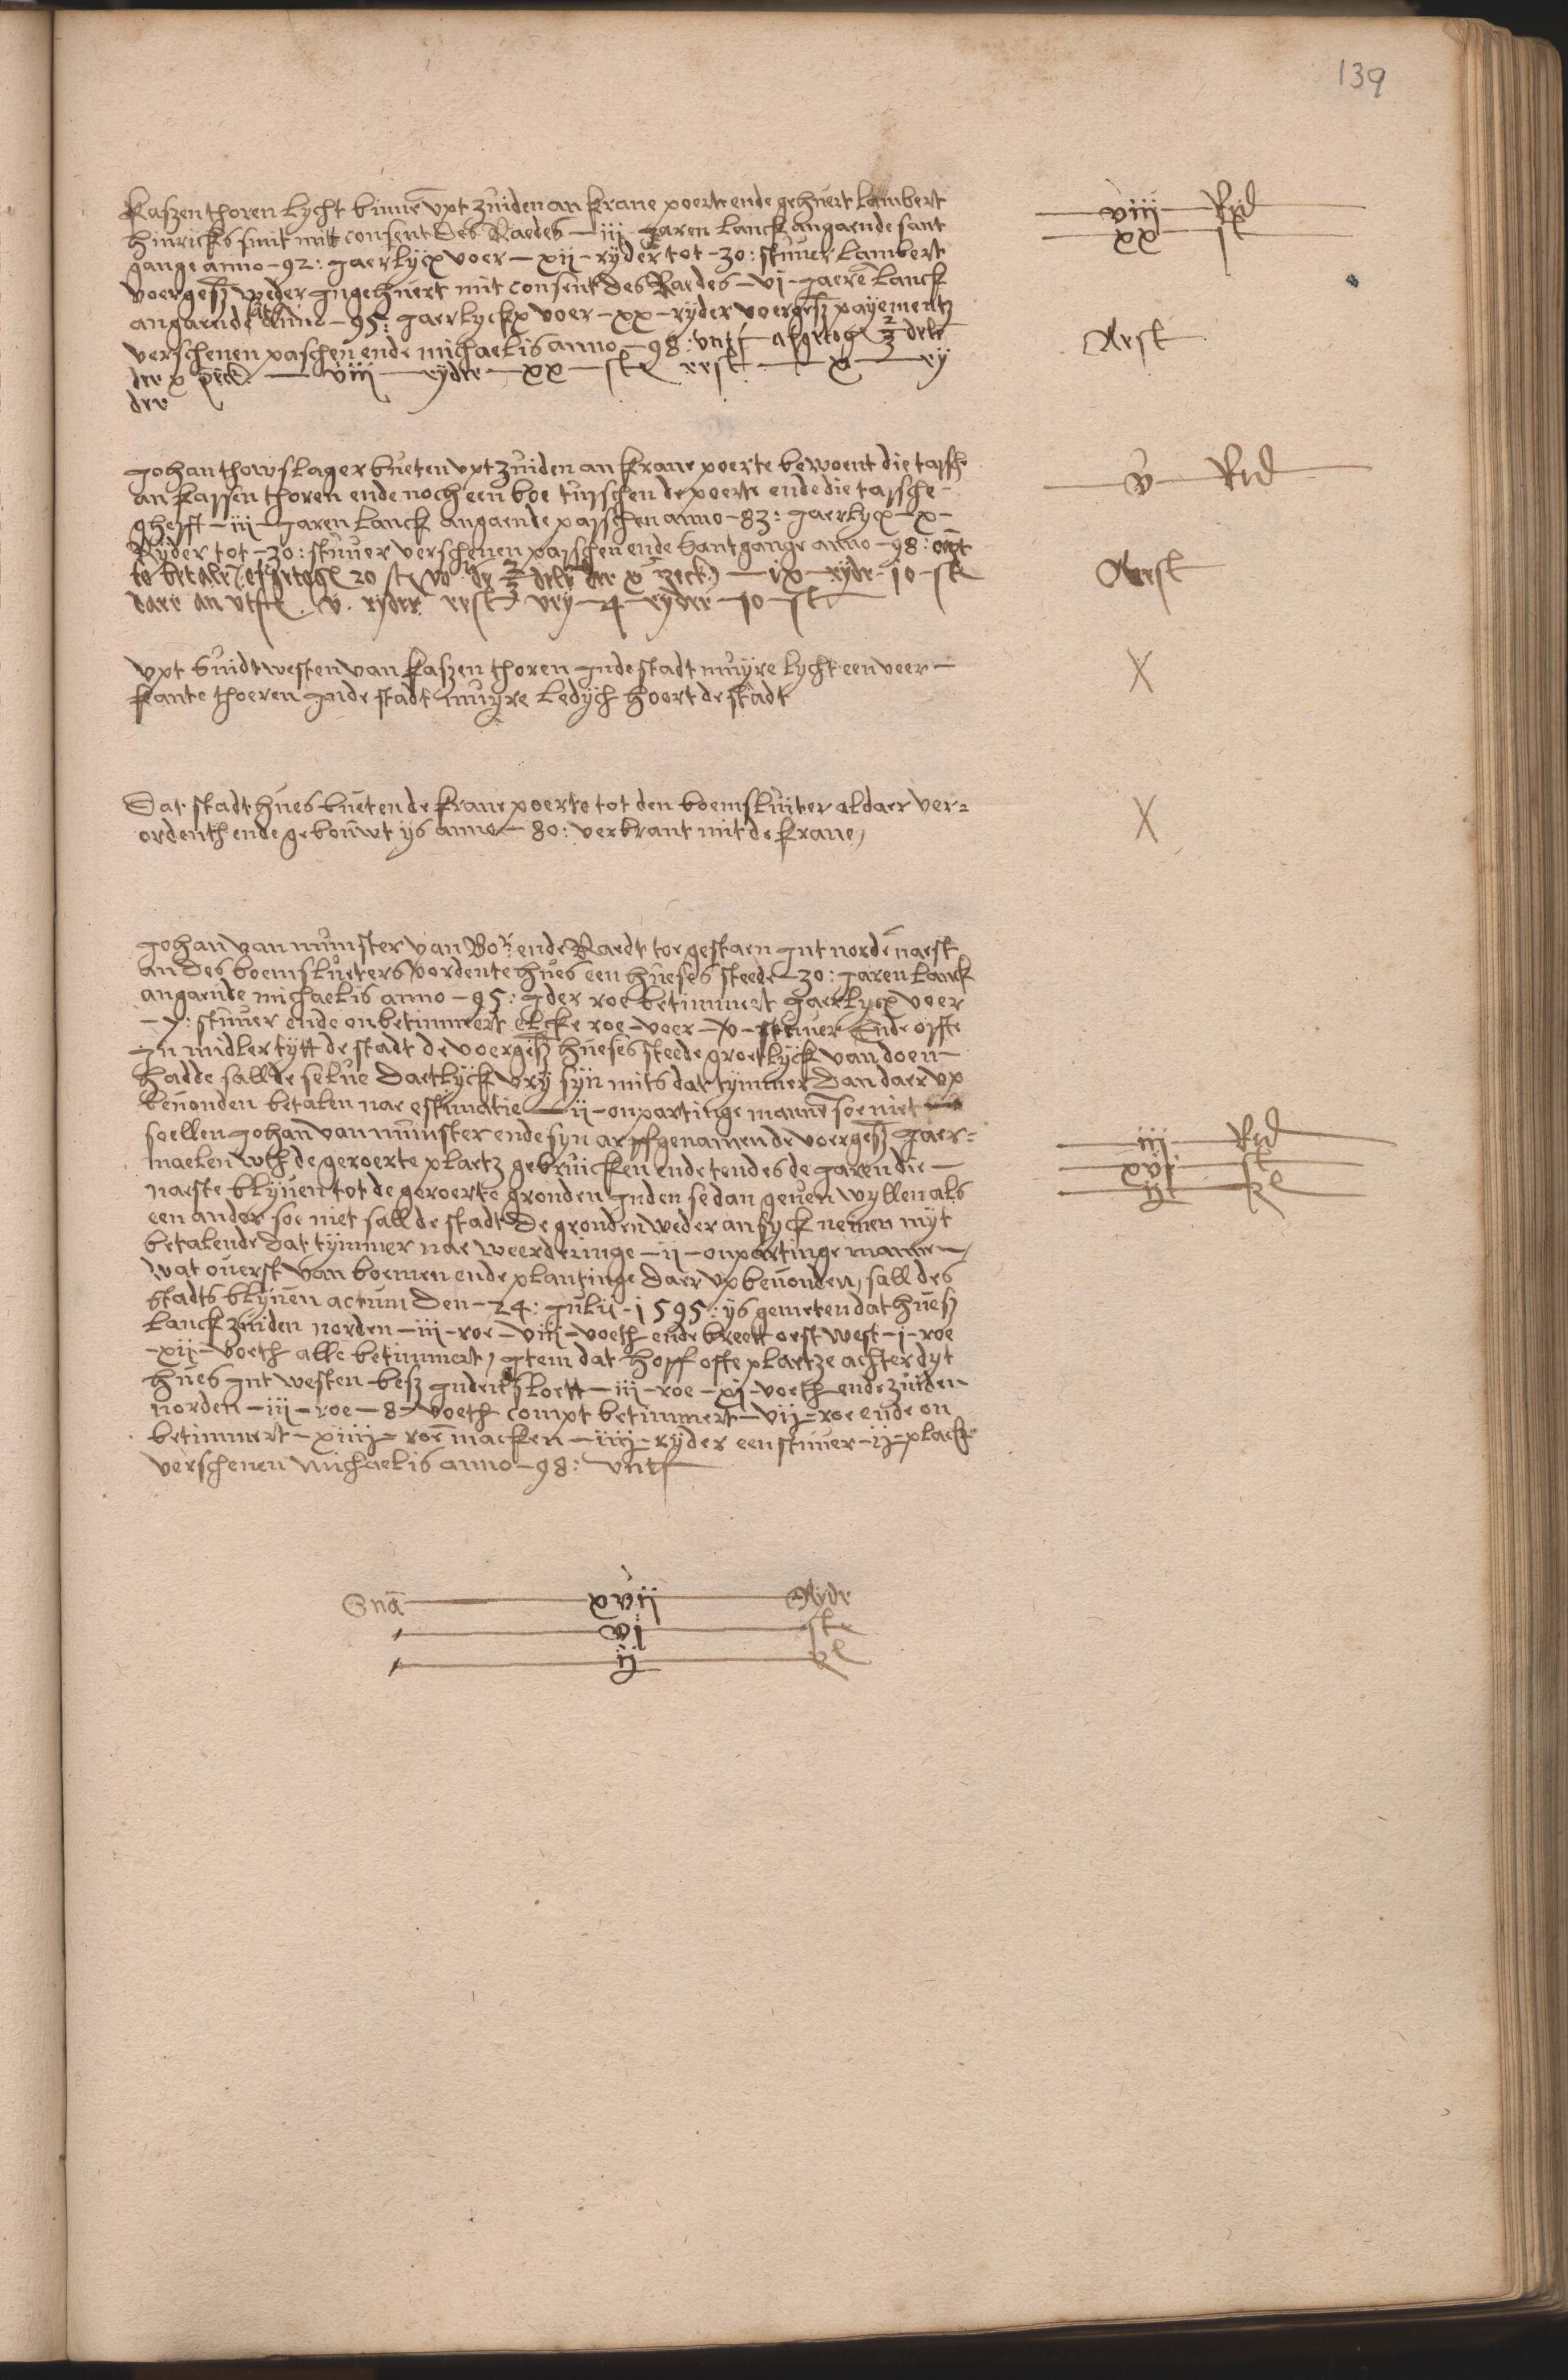 139
Kaszen thoren lycht binnē vpt zuiden an krane poerte ende gehuert Lambert
hinricks smit mitt consent des Raedes – iij – Jaren lanck angaende sant
gange anno – 92: Jaerlycx voer – xij – ryder tot – 30: stuver Lambert
voergesz weder Ingehuert mit consent des Raedes – vj – Jaerē lanck
angaende anno – 95: Jaerlyckx voer – xx – ryder voergesz payementz
verschenen paschen ende michaelis anno – 98: vntf afgetogē 2/3 dele
der x – viij – ryder – xx – st rest – x – ry
der
viij Rid
xx st
Rest
Johan thowslager bueten vpt zuiden an krane poerte bewoent die tassche
an kassen thoren ende noch een boe tusschen de poerte ende die tassche –
ghefft – iij – Jaren lanck angaende passchen anno – 83: Jaerlycx – x –
Ryder tot – 30: stuver verschenen passchen ende Sant gange anno – 98:
te betalē 20 st 2/3 dele der x – ix – ryder – 10 – st
daer an vtf v. ryder rest – 4 – ryder – 10 – st
v Rid
Rest
vpt Suidtwesten van kaszen thoren Inde stadt muyre lycht een veer –
kante thoeren Inde stadt muyre ledych hoert de stadt
X
Dat stadt hues bueten de krane poerte tot den boemsluiter aldaer ver=
ordenth ende gebouwt ys anno – 80: verbrant mit de krane
X
Johan van munster van Bor: ende Raedt toe gestaen Int nordē naest
an des boemslueters vordente hues een hueses steede – 30: Jaren lanck
angaende michaelis anno – 95: Jder roe betimmert Jaerlycx voer
– x: stuver ende onbetimmert elcke roe – voer – v – stuver Ende offte
Jn midler tytt de stadt de voergesz hueses steede groetlyck van doen –
hadde sall de selue daetlyck vry syn mits dat tymmer dan daer vp
beuonden betalen nae estimatie – ij – onpartinge mannē soe niet
soellen Johan van munster ende syn arffgenamen de voergesz Jaer=
maelen wth de geroerte plaetz gebruicken ende tendes de Jaren die –
naeste blyuen tot de geroerte gronden Inden se dan geuen wyllen als
een ander soe niet sall de stadt de gronden weder an syck nemen myt
betalende dat tymmer nae weerderinge – ij – onpartinge manne –
wat ouerst van boemen ende plantinge daer vp beuonden, sall des
stadts blyuen actum den – 24: Julij – 1595: ys gemeten dat huesz
lanck zuiden norden – iij – roe – viij – voeth ende breett oest west – j – roe
– xij – voeth alle betimmert, Jtem dat hoff offte plaetze achter dyt
hues Int westen besz Inden sloett – iij – roe – xj – voeth ende zuiden
norden – iij – roe – 8 – voeth compt betimmert – vij – roe ende on
betimmert – xiiij – roē macken – iiij – ryder een stuver – ij – plack
verschenen michaelis anno – 98: vntf
iij Rid
xvj st
ij pl
Sūa xvij Ryder
vj st
ij pl